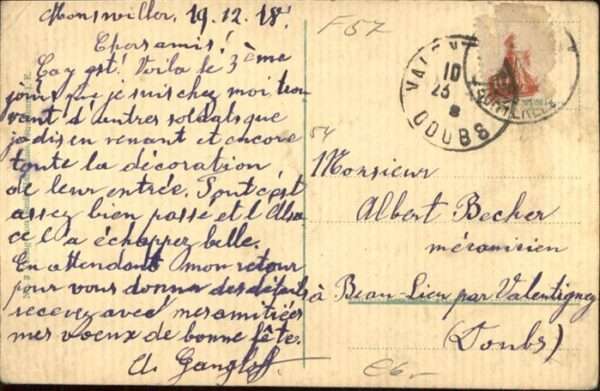 Monswiller, 19.12.18!
Chers amis!
Cay est! Voila le 3ème
jours que je suis chez moi trou
vant d'autres soldats que
jadis en venant et encore
toute la décoration
de leur entrée. Tout c'est
assez bien passé et l'Alsa
ce l'a échapper belle.
En attendant mon retour
pour vous donner des détails
recevez avec mes amitiées
mes voeux de bonne fête.
Ch. Gangloff
F57
VALENT
10
23
8
DOUBS
54
Monsieur
Albert Becher
mécanicien
à Beau-Lieu par Valentigney
(Doubs)